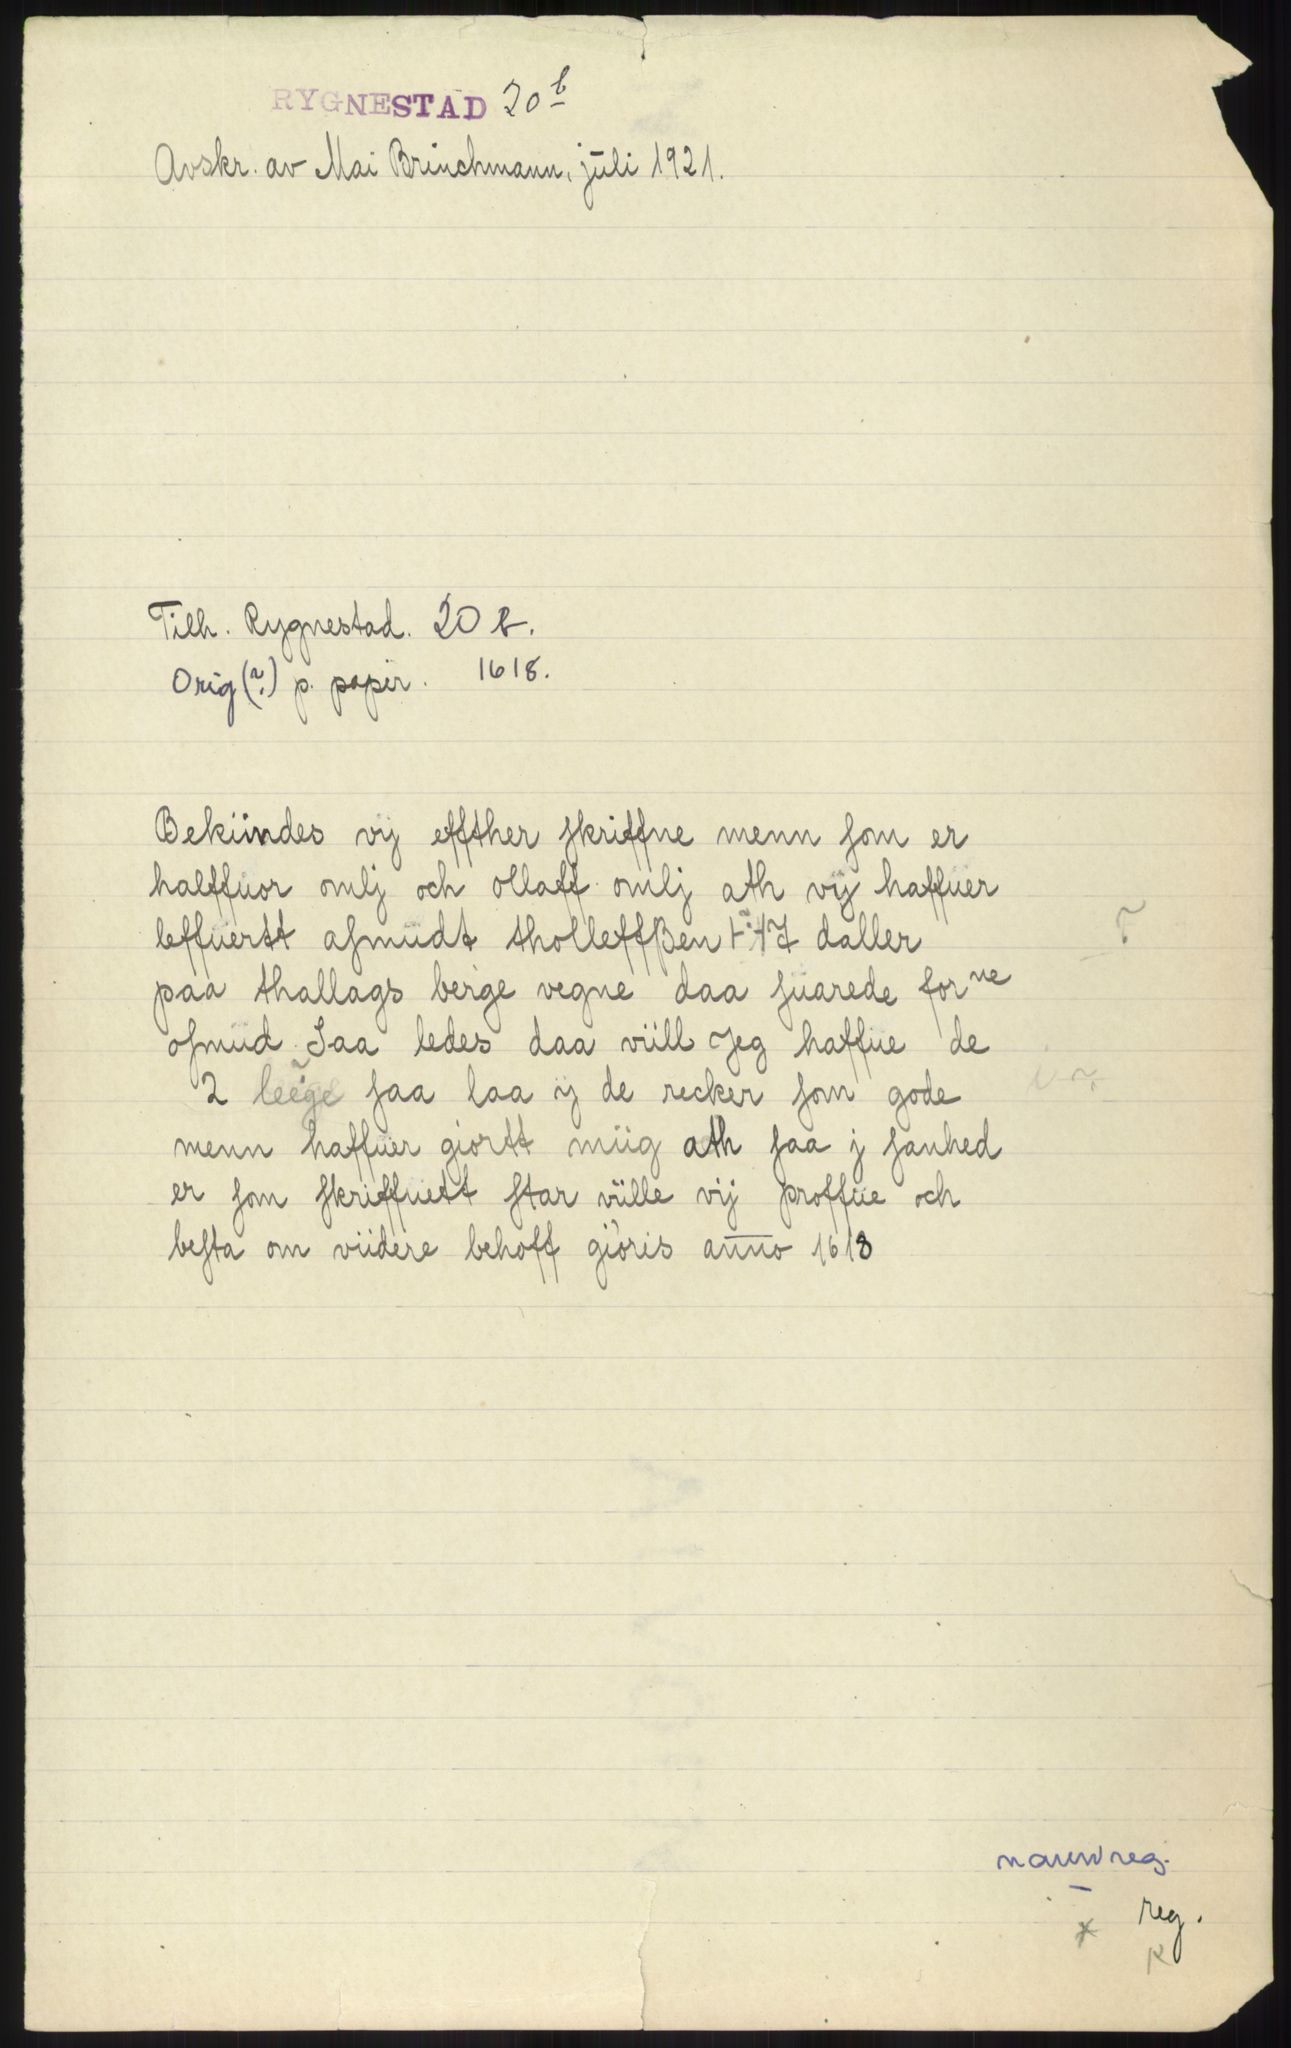 RYGNESTAD 20b
Avskr. av Mai Brinchmann, juli 1921.
Tilh. Rygnestad. 20 b.
Orig (?) p. papir. 1618.
Bekiindes vÿ effther skriffne menn som er
halffuor omlj och ollaff omlj ath vÿ haffuer
leffuertt asmudt tholleffßen daller
paa thallags berge vegne daa suarede forne
osmud Saa ledes daa viill Jeg haffue de
2 saa laa ÿ de recker som gode
menn haffuer giortt miig ath saa j sanhed
er som skriffuett star viille vij proffue och
besta om viidere behoff giöris anno 1618
navnreg.
reg.